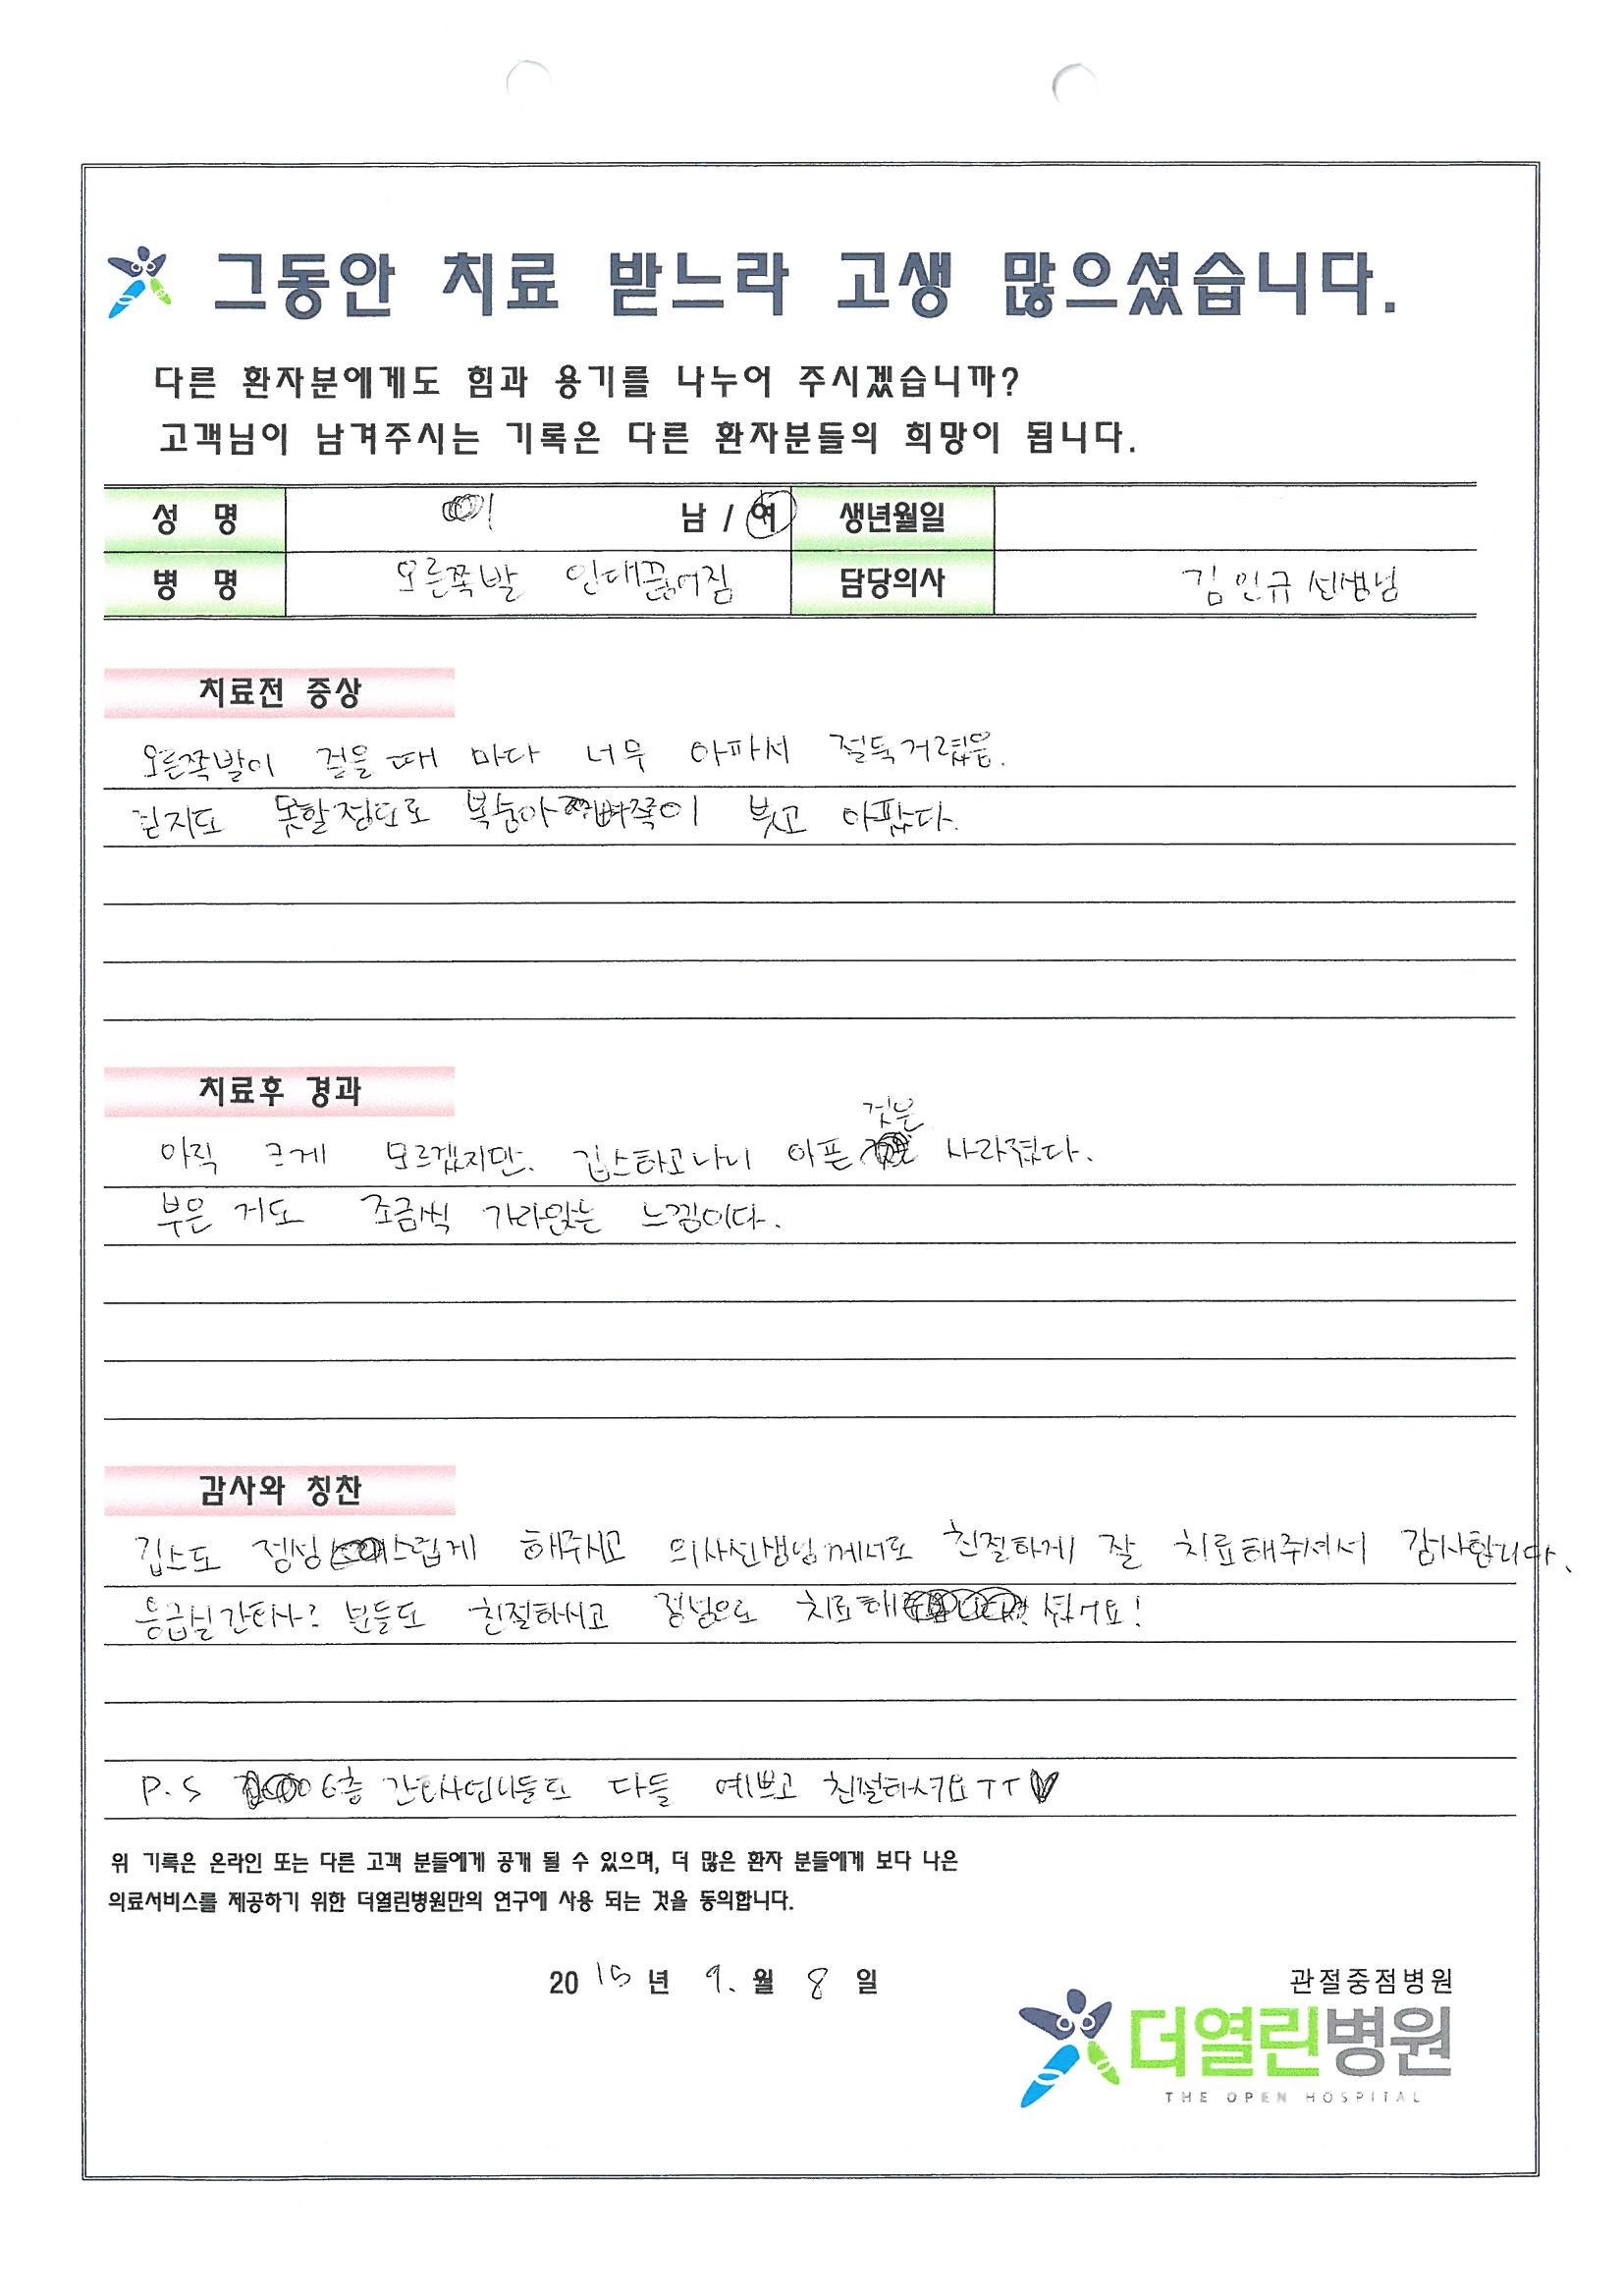 그동안 치료 받느라 고생 많으셨습니다.
다른 환자분에게도 힘과 용기를 나누어 주시겠습니까?
고객님이 남겨주시는 기록은 다른 환자분들의 희망이 됩니다.
성 명 이 남 / 여 생년월일
병 명 오른쪽발 인대끊어짐 담당의사 김인규선생님
치료전 증상
오른쪽발이 걸을때 마다 너무 아파서 절둑거렸음.
걷지도 못할정도로 복숭아뼈쪽이 붓고 아팠다.
치료후 경과
아직 크게 모르겠지만. 깁스타고나니 아픈 것은 사라졌다.
부은 거도 조금씩 가라앉는 느낌이다.
감사와 칭찬
깁스도 정성스럽게 해주시고 의사선생님께서도 친절하게 잘 치료해주셔서 감사합니다.
응급실간호사? 분들도 친절하시고 정성으로 치료해주셨어요!
P.S 6층 간호사언니들도 다들 예쁘고 친절하셔요ㅜㅜ♥
위 기록은 온라인 또는 다른 고객 분들에게 공개 될 수 있으며, 더 많은 환자 분들에게 보다 나은
의료서비스를 제공하기 위한 더열린병원만의 연구에 사용 되는 것을 동의합니다.
2015년 9.월 8일
관절중점병원
더열린병원
THE OPEN HOSPITAL